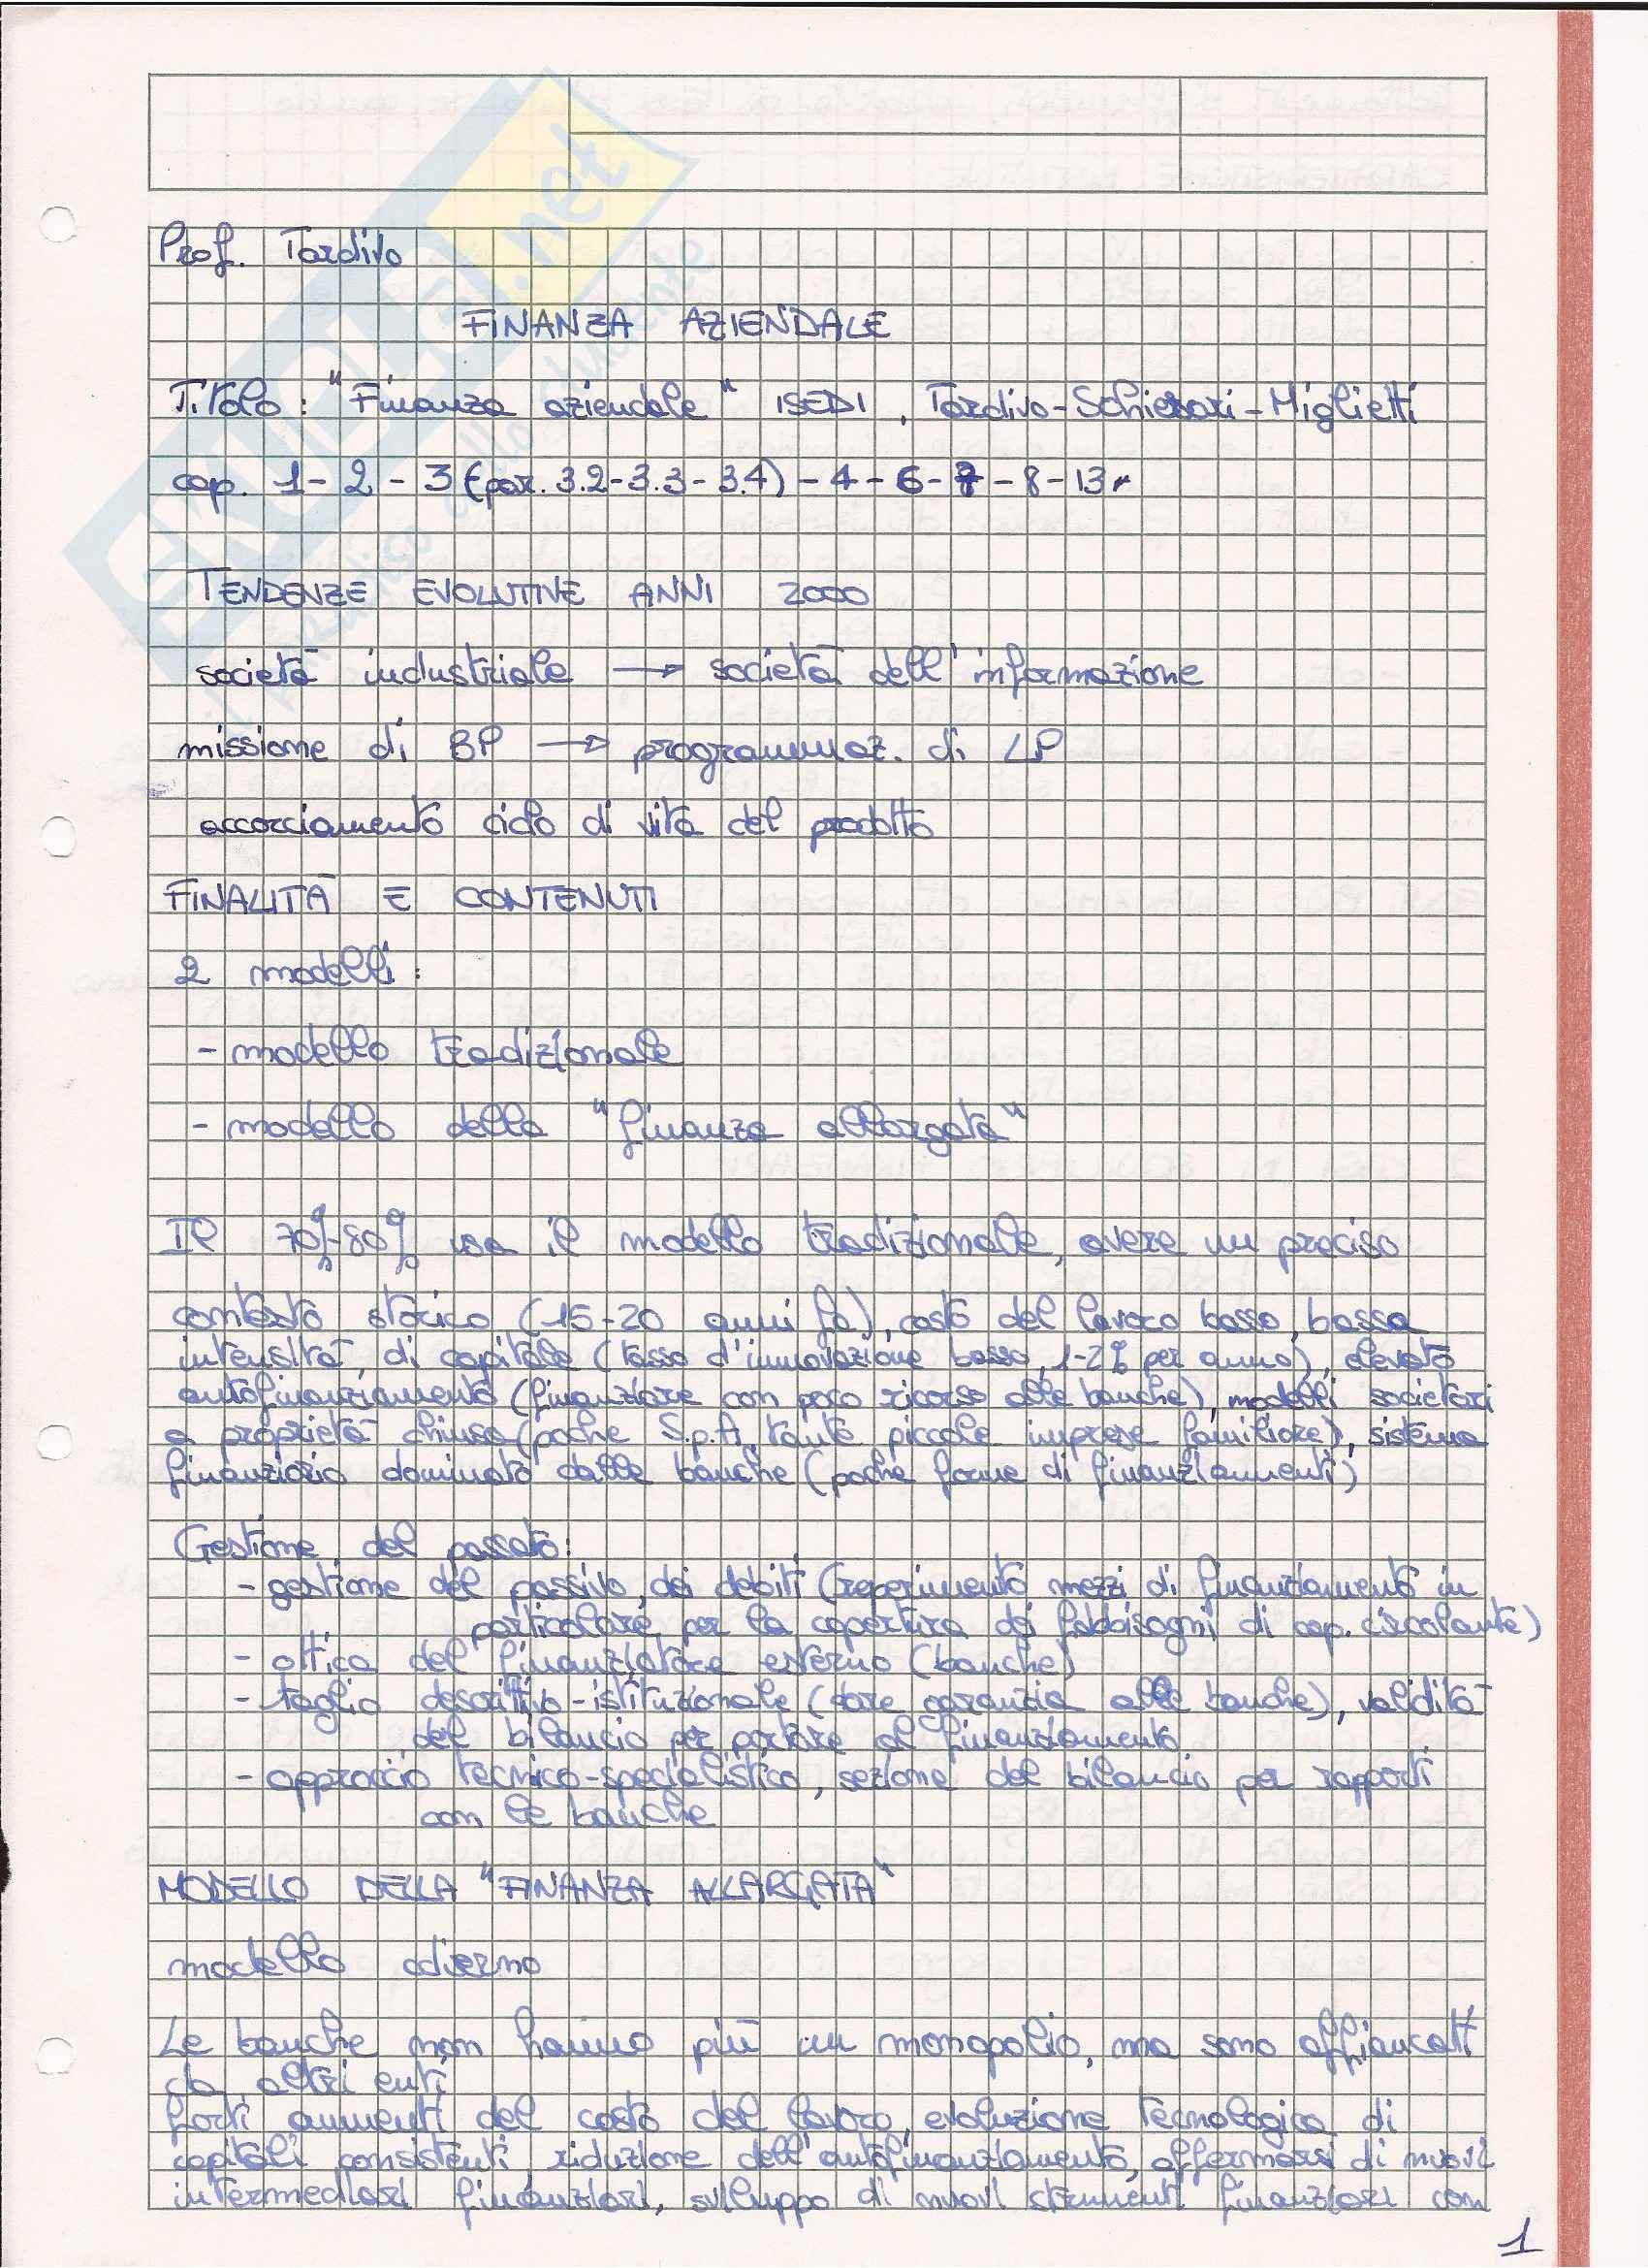 Prof. Tardivo
FINANZA AZIENDALE
Titolo: "Finanza aziendale" ISEDI, Tardivo-Schiesari-Miglietti
cap. 1-2-3 (par. 3.2-3.3-3.4)-4-6-7-8-13
TENDENZE EVOLUTIVE ANNI 2000
società industriale → società dell'informazione
missione di BP → programmaz. di LP
accorciamento ciclo di vita del prodotto
FINALITÀ E CONTENUTI
2 modelli:
- modello tradizionale
- modello della "finanza allargata"
Il 70%-80% usa il modello tradizionale, avere un preciso
contesto storico (15-20 anni fa), costo del lavoro basso, bassa
intensità di capitale (tasso d'innovazione basso, 1-2% per anno), elevato
autofinanziamento (finanziare con poco ricorso alle banche), modelli societari
a proprietà chiusa (poche S.p.A, tante piccole imprese familiare), sistema
finanziario dominato dalle banche (poche forme di finanziamenti)
Gestione del passato:
- gestione del passivo, dei debiti (reperimento mezzi di finanziamento in
particolare per la copertura dei fabbisogni di cap. circolante)
- ottica del finanziatore esterno (banche)
- taglio descrittivo-istituzionale (dare garanzia alle banche), validità
del bilancio per portare al finanziamento
- approccio tecnico-specialistico, sezione del bilancio per rapporti
con le banche
MODELLO DELLA "FINANZA ALLARGATA"
modello odierno
Le banche non hanno più un monopolio, ma sono affiancati
da altri enti
forti aumenti del costo del lavoro, evoluzione tecnologica di
capitali consistenti, riduzione dell'autofinanziamento, affermarsi di nuovi
intermediari finanziari, sviluppo di nuovi strumenti finanziari con
1
SKUOLA.net
il paradiso dello studente